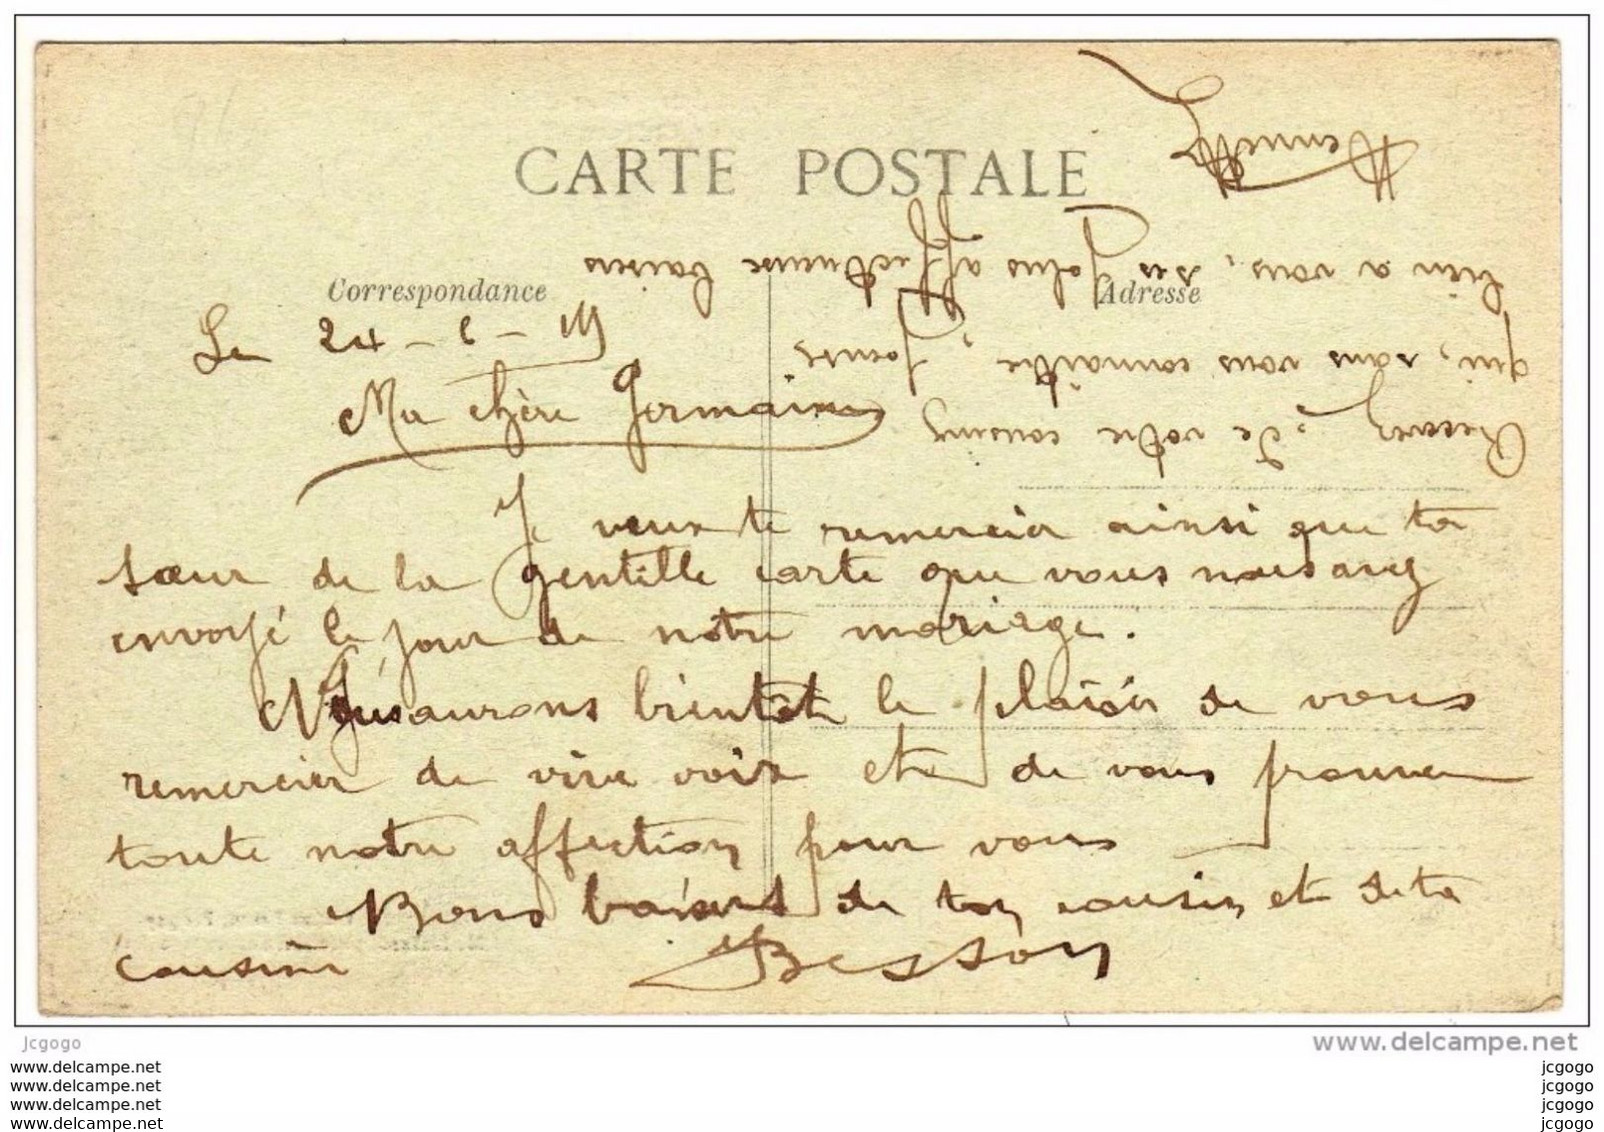 CARTE POSTALE
Correspondance
Adresse
Le 24 - 6 - 19
Ma chère Germaine
Je veux te remercier ainsi que ta
sœur de la gentille carte que vous nous avez
envoyé le jour de notre mariage.
Nous aurons bientôt le plaisir de vous
remercier de vive voix et de vous prouver
toute notre affection pour vous
Bons baisers de ton cousin et de ta
cousine Besson
Recevez, de votre cousine
qui, sans vous connaître, pense
bien a vous, ses plus affectueux baisers
jcgogo
www.delcampe.net
www.delcampe.net
www.delcampe.net
www.delcampe.net
www.delcampe.net
jcgogo
jcgogo
jcgogo
jcgogo